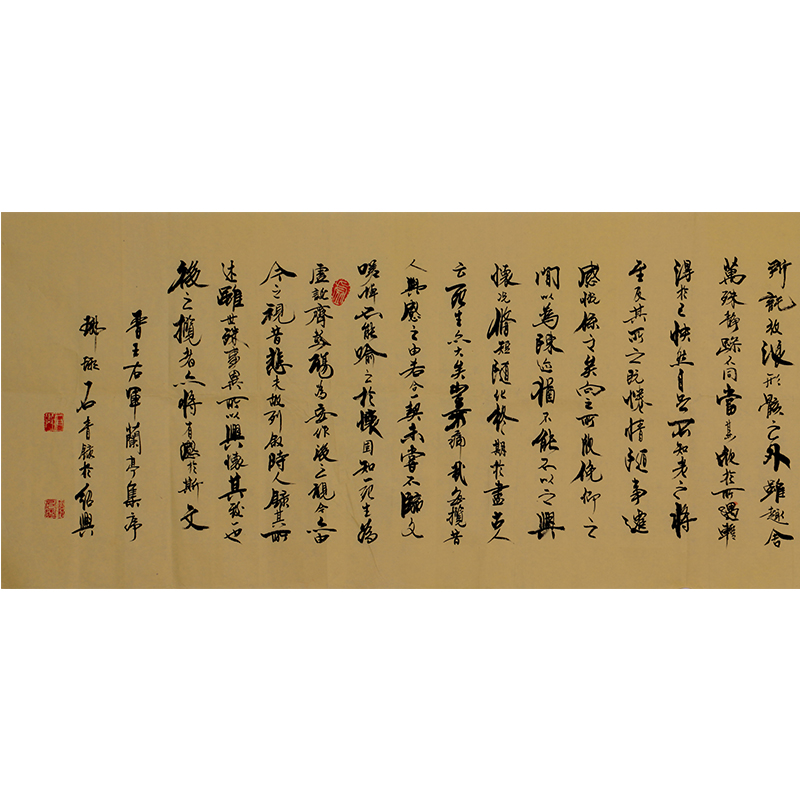 所託放浪形骸之外雖趣舍
萬殊靜躁不同當其欣於所遇蹔
得於己怏然自足不知老之將
至及其所之既惓情隨事遷
感慨係之矣向之所欣俛仰之
間以為陳迹猶不能不以之興
懷況脩短隨化終期於盡古人
云死生亦大矣豈不痛哉每攬昔
人興感之由若合一契未嘗不臨文
嗟悼不能喻之於懷固知一死生為
虛誕齊彭殤為妄作後之視今亦由
今之視昔悲夫故列敘時人錄其所
述雖世殊事異所以興懷其致一也
後之攬者亦將有感於斯文
晉王右軍蘭亭集序
石青錄於紹興